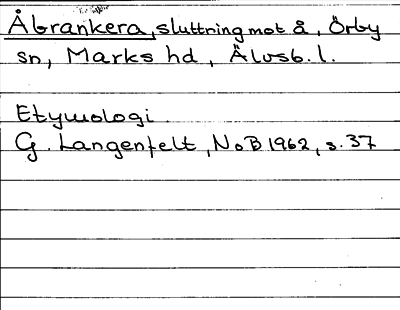 Åbrankera, sluttring mot å, Örby
sn, Marks hd, Älvsb. l.
Etymologi
G. Langenfelt, NoB 1962, s. 37